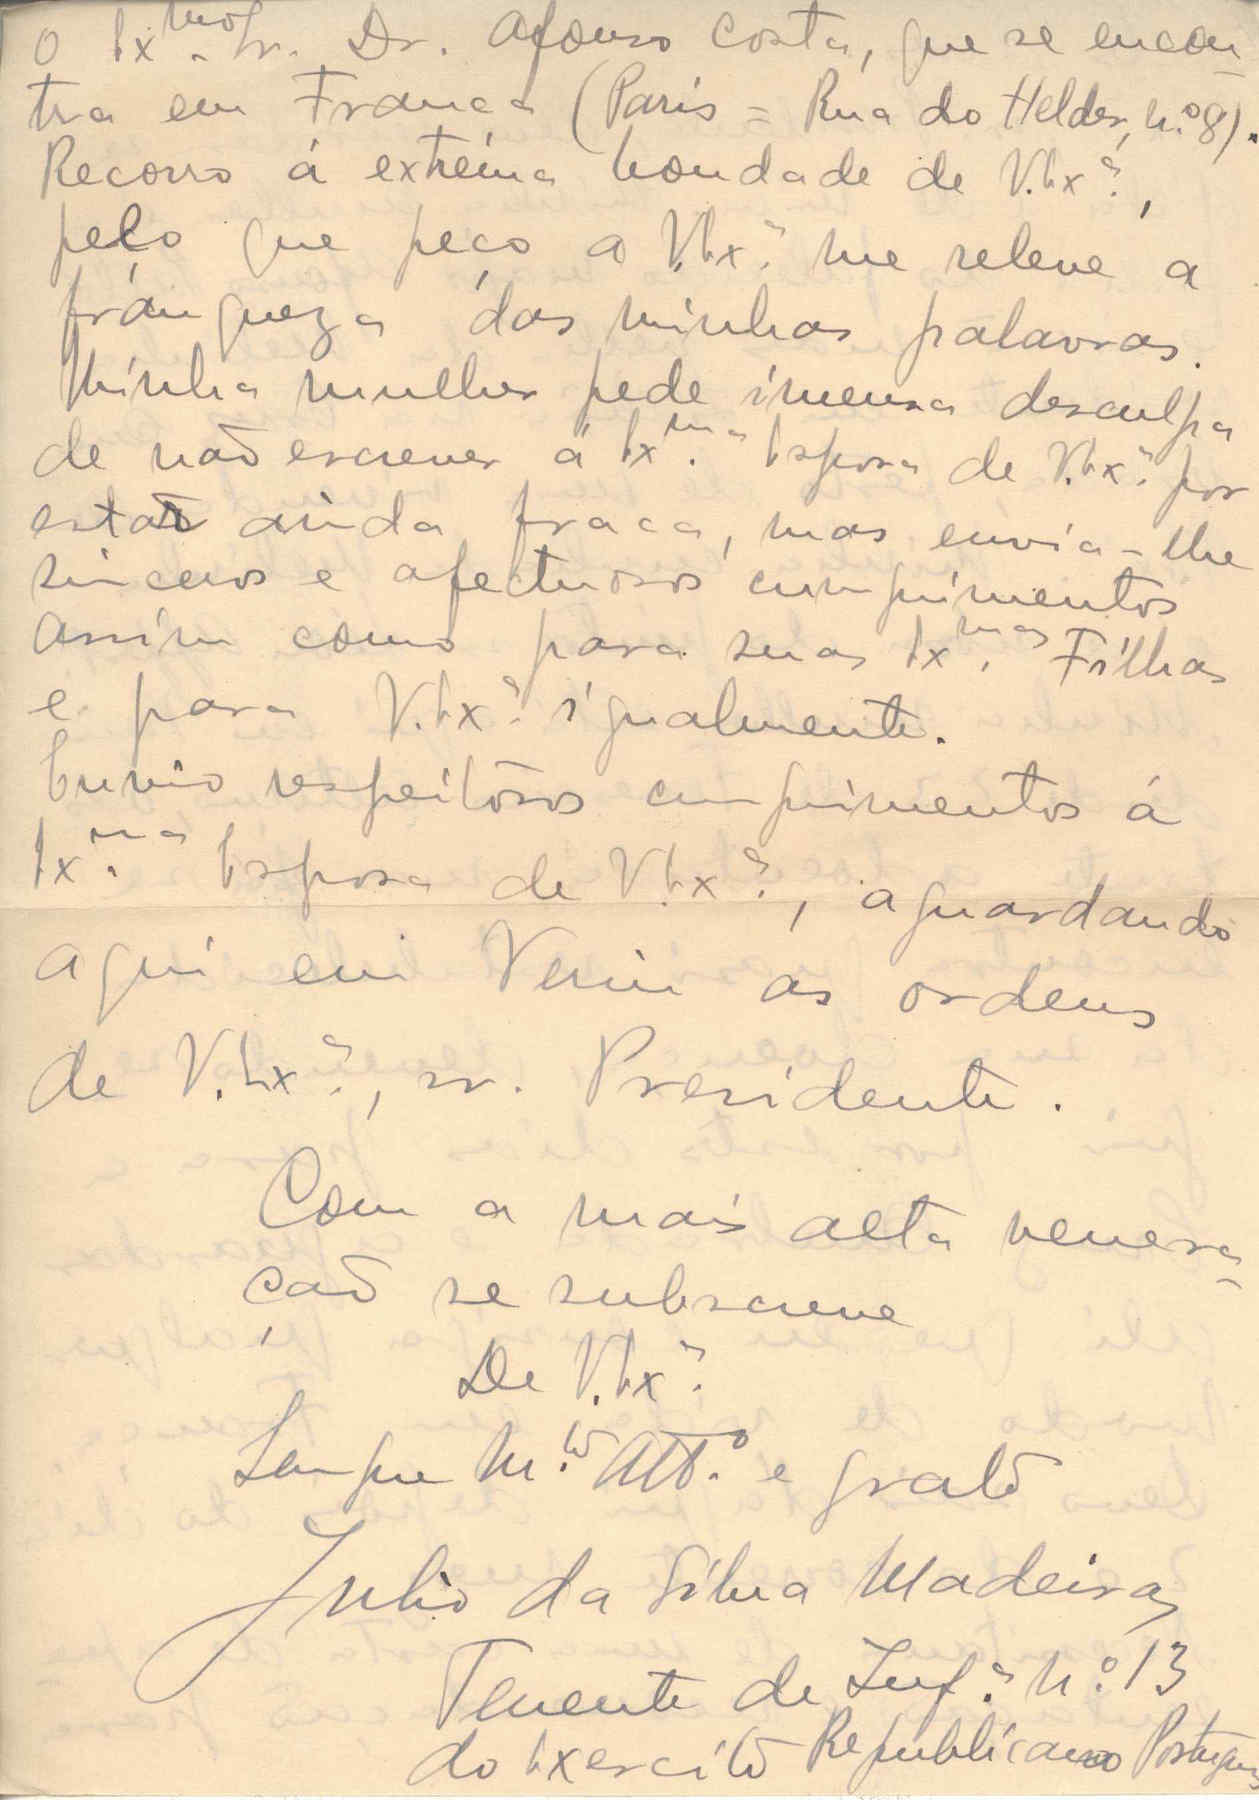 o Ex.mo Sr. Dr. Afonso Costa, que se encon-
tra em França (Paris = Rua do Helder, n.º 8).
Recorro á extrema bondade de V. Ex.ª,
pelo que peço a V. Ex.ª me releve a
franqueza das minhas palavras.
Minha mulher pede imensa desculpa
de não escrever á Ex.ma Esposa de V. Ex.ª por
estar ainda fraca, mas envia-lhe
sinceros e afectuosos cumprimentos
assim como para suas Ex.mas Filhas
e para V. Ex.ª igualmente.
Envio respeitosos cumprimentos á
Ex.ma Esposa de V. Ex.ª, aguardando
aqui em Verin as ordens
de V. Ex.ª, sr. Presidente.
Com a mais alta venera-
ção se subscreve
De V. Ex.ª
Sempre M.to Att.º e grato
Julio da Silva Madeira
Tenente de Inf.ª n.º 13
do Exercito Republicano Português